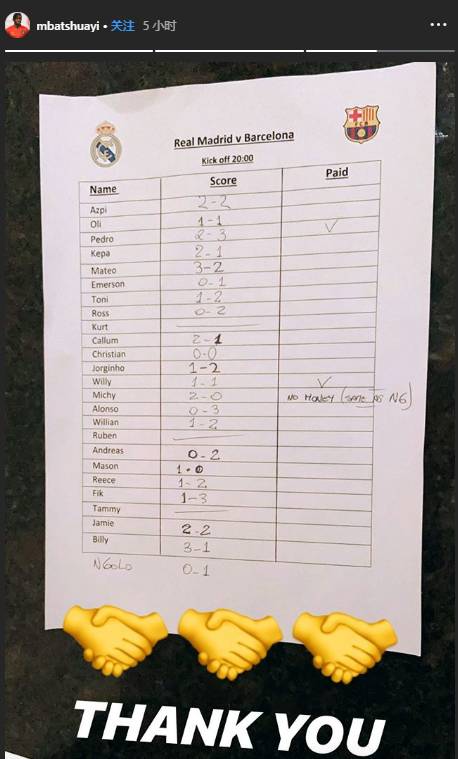 mbatshuayi • 关注 5 小时
Real Madrid v Barcelona
Kick off 20:00
Name Score Paid
Azpi 2-2
Oli 1-1 ✓
Pedro 2-3
Kepa 2-1
Mateo 3-2
Emerson 0-1
Toni 1-2
Ross 0-2
Kurt
Callum 2-1
Christian 0-0
Jorginho 1-2
Willy 1-1 ✓
Michy 2-0 NO MONEY (SAME AS NG)
Alonso 0-3
Willian 1-2
Ruben
Andreas 0-2
Mason 1-0
Reece 1-2
Fik 1-3
Tammy
Jamie 2-2
Billy 3-1
NGOLO 0-1
THANK YOU